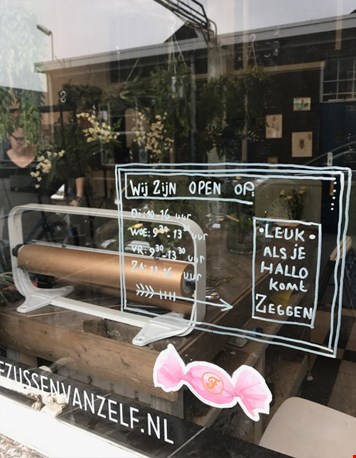 Wij Zijn OPEN OP
Di: 10-16 uur
WOE: 9³⁰-13³⁰ uur
VR: 9³⁰-13³⁰ uur
ZA: 11-16 uur
LEUK
ALS JE
HALLO
komt
ZEGGEN
EZUSSENVANZELF.NL